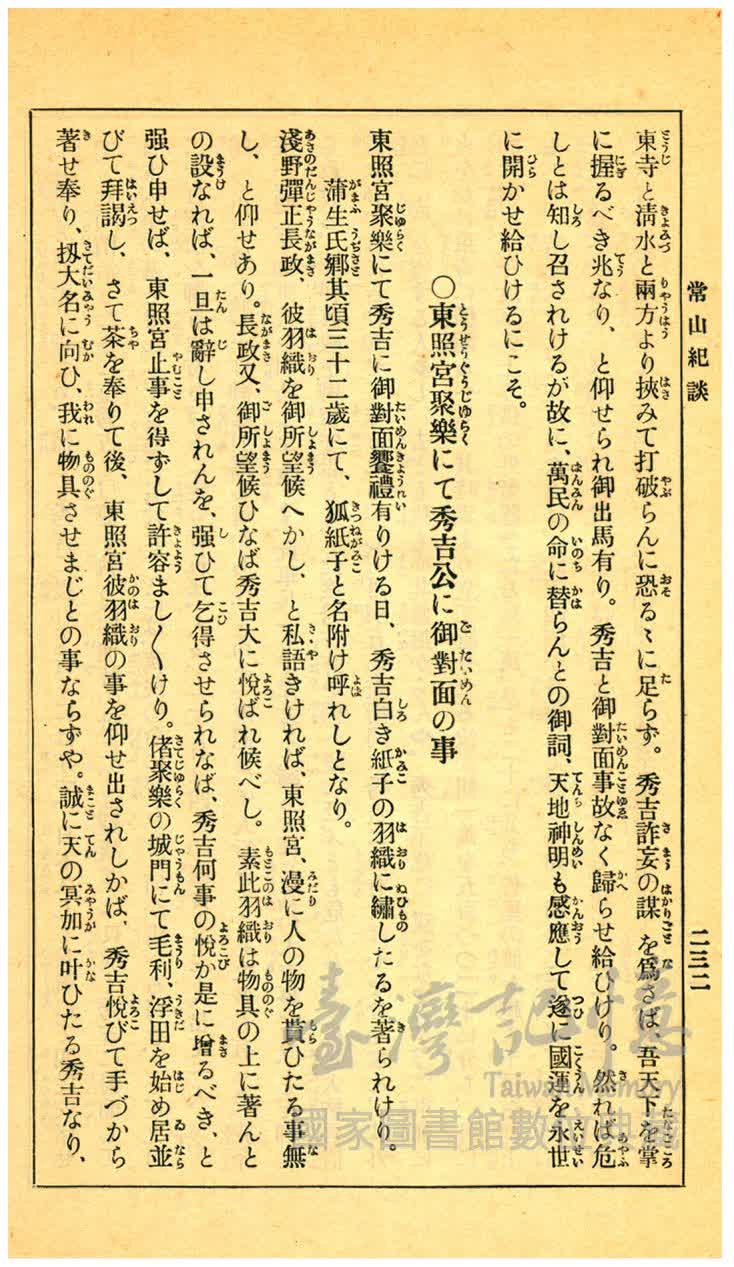 常山紀談
二三二
東寺と淸水と兩方より挾みて打破らんに恐るゝに足らず。秀吉詐妄の謀を爲さば、吾天下を掌
に握るべき兆なり、と仰せられ御出馬有り。秀吉と御對面事故なく歸らせ給ひけり。然れば危
しとは知し召されけるが故に、萬民の命に替らんとの御詞、天地神明も感應して遂に國運を永世
に開かせ給ひけるにこそ。
〇東照宮聚樂にて秀吉公に御對面の事
東照宮聚樂にて秀吉に御對面饗禮有りける日、秀吉白き紙子の羽織に繡したるを著られけり。
蒲生氏鄕其頃三十二歲にて、狐紙子と名附け呼れしとなり。
淺野彈正長政、彼羽織を御所望候へかし、と私語きければ、東照宮、漫に人の物を貰ひたる事無
し、と仰せあり。長政又、御所望候ひなば秀吉大に悅ばれ候べし。素此羽織は物具の上に著んと
の設なれば、一旦は辭し申されんを、强ひて乞得させられなば、秀吉何事の悅か是に增るべき、と
强ひ申せば、東照宮止事を得ずして許容まし〱けり。偖聚樂の城門にて毛利、浮田を始め居並
びて拜謁し、さて茶を奉りて後、東照宮彼羽織の事を仰せ出されしかば、秀吉悅びて手づから
著せ奉り、扨大名に向ひ、我に物具させまじとの事ならずや。誠に天の冥加に叶ひたる秀吉なり、
臺灣記憶
Taiwan Memory
國家圖書館數位典藏